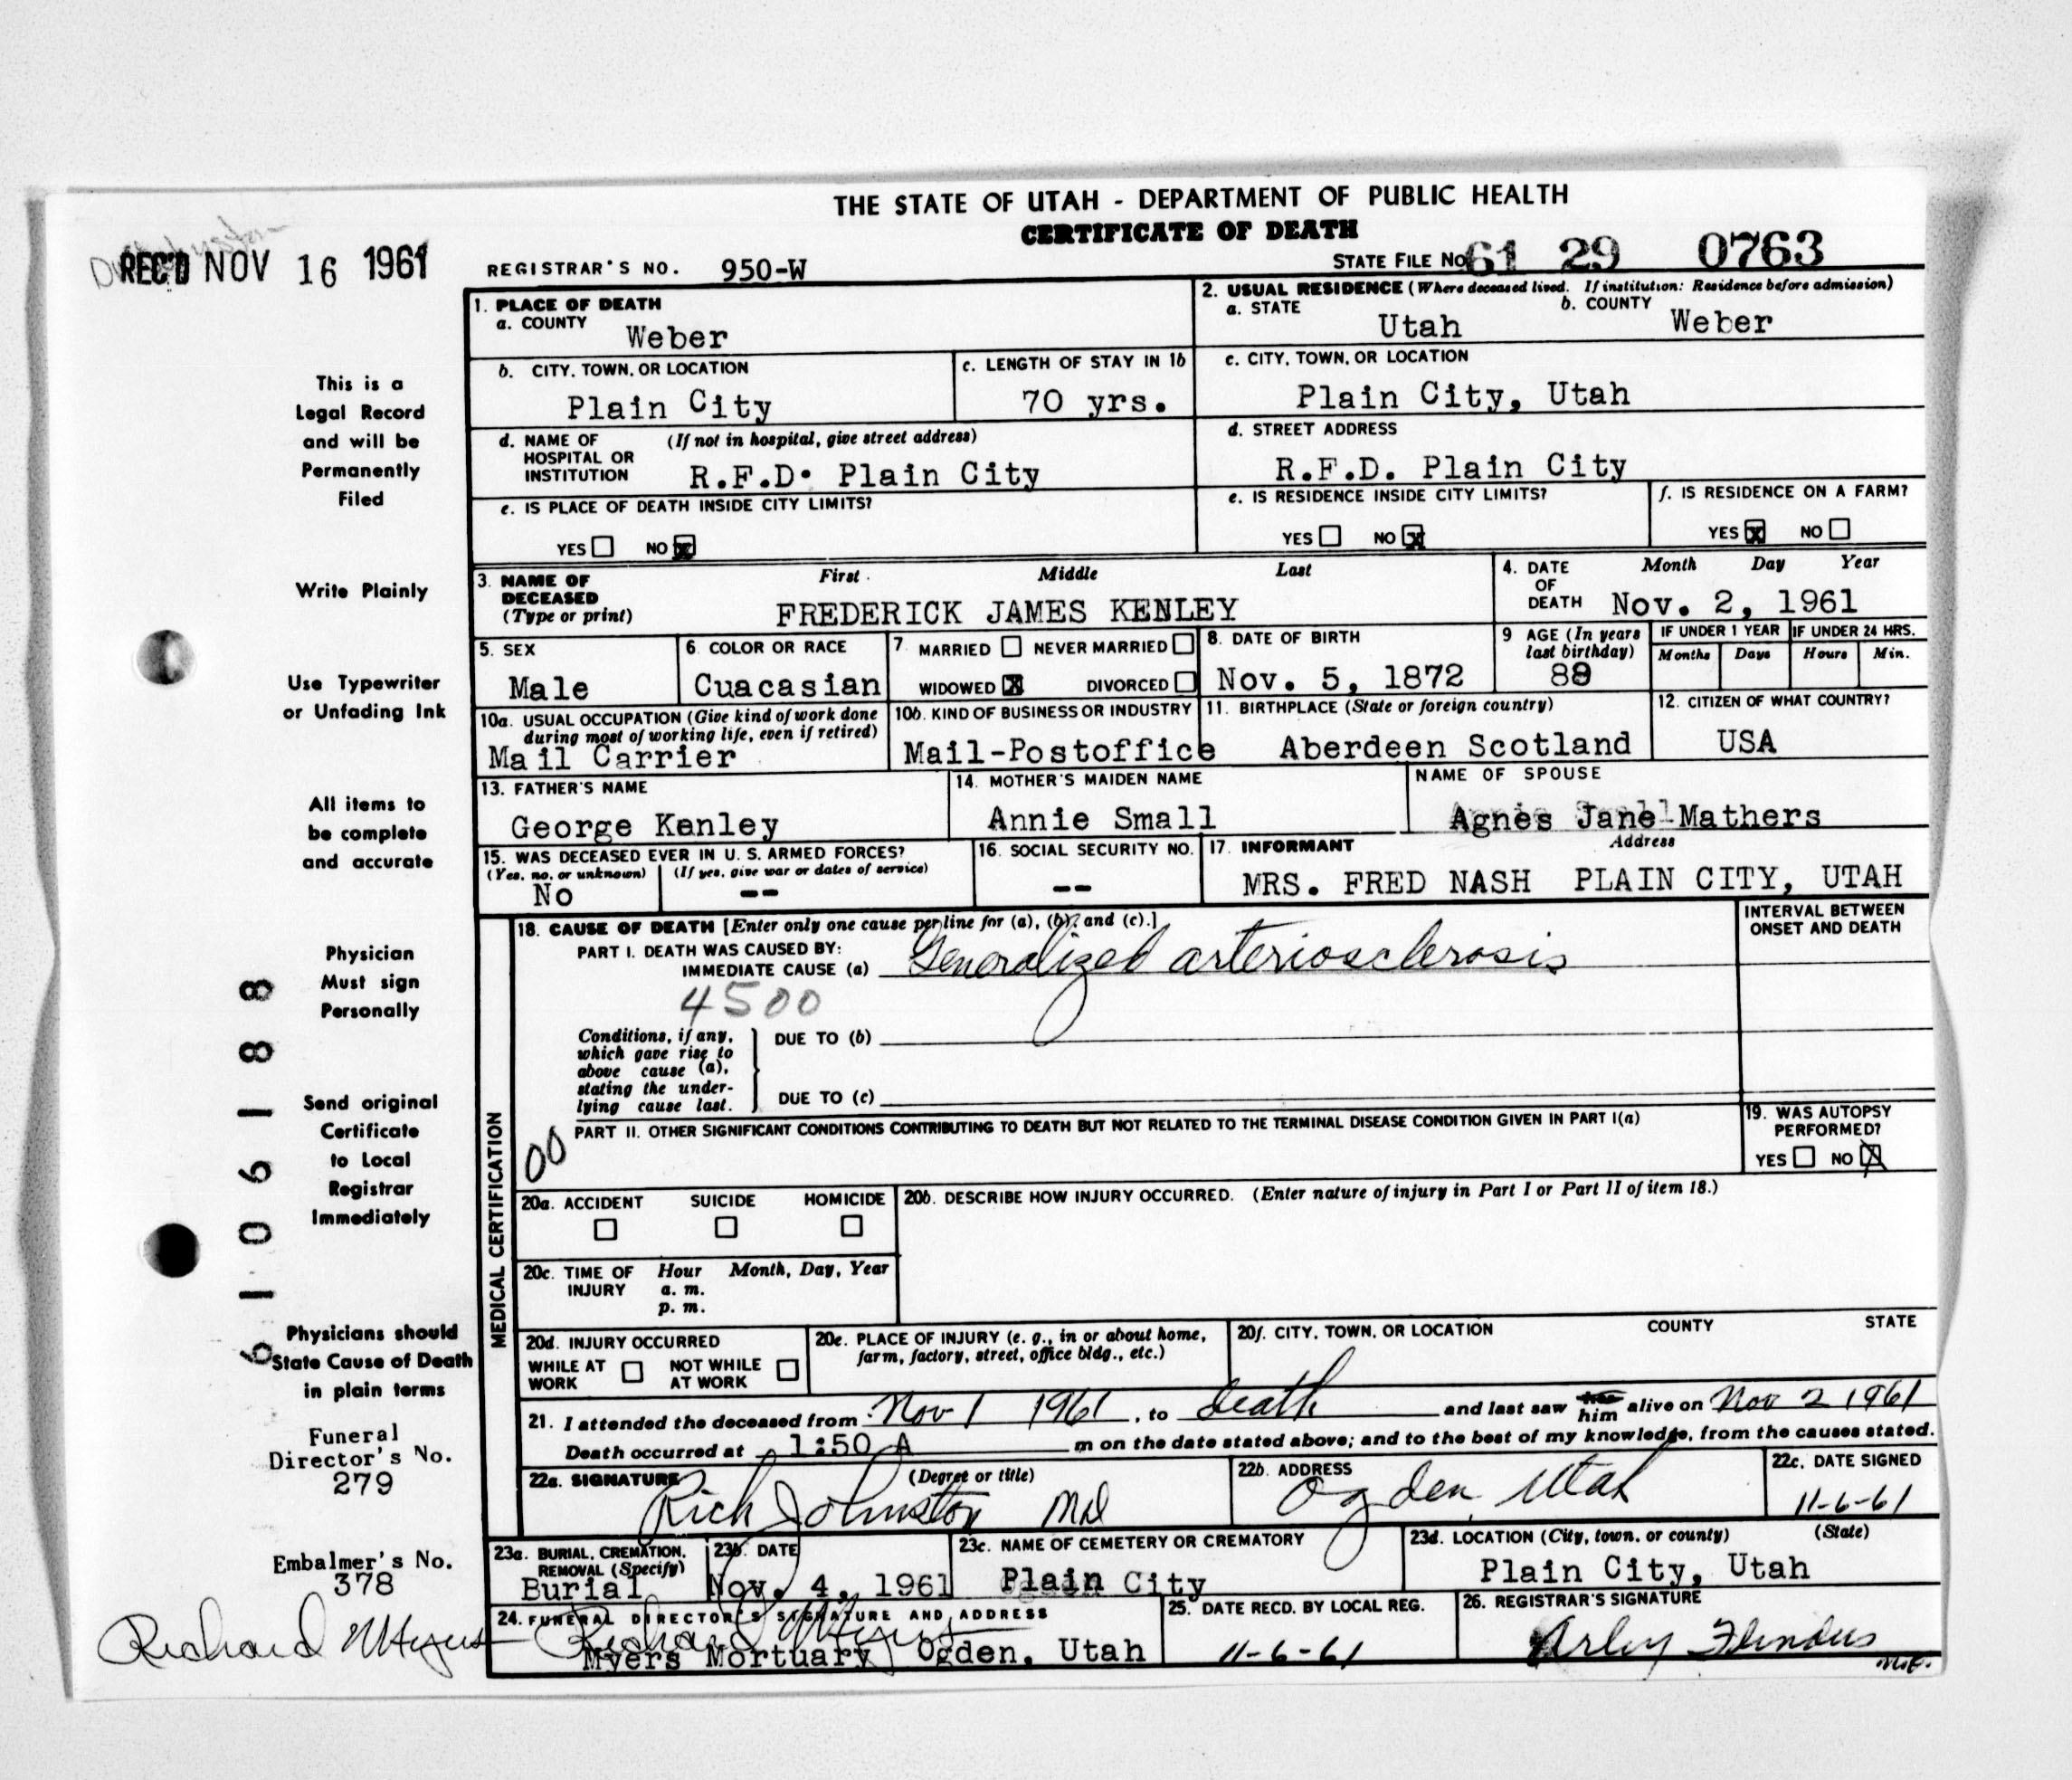 THE STATE OF UTAH - DEPARTMENT OF PUBLIC HEALTH
CERTIFICATE OF DEATH
REC'D NOV 16 1961
REGISTRAR'S NO. 950-W
STATE FILE NO. 61 29 0763
1. PLACE OF DEATH
a. COUNTY
Weber
2. USUAL RESIDENCE (Where deceased lived. If institution: Residence before admission)
a. STATE
Utah
b. COUNTY
Weber
b. CITY, TOWN, OR LOCATION
Plain City
c. LENGTH OF STAY IN 1b
70 yrs.
c. CITY, TOWN, OR LOCATION
Plain City, Utah
d. NAME OF HOSPITAL OR INSTITUTION
(If not in hospital, give street address)
R.F.D. Plain City
d. STREET ADDRESS
R.F.D. Plain City
e. IS PLACE OF DEATH INSIDE CITY LIMITS?
YES NO X
e. IS RESIDENCE INSIDE CITY LIMITS?
YES NO X
f. IS RESIDENCE ON A FARM?
YES X NO
3. NAME OF DECEASED
(Type or print)
First Middle Last
FREDERICK JAMES KENLEY
4. DATE OF DEATH
Month Day Year
Nov. 2, 1961
5. SEX
Male
6. COLOR OR RACE
Cuacasian
7. MARRIED NEVER MARRIED
WIDOWED X DIVORCED
8. DATE OF BIRTH
Nov. 5, 1872
9 AGE (In years last birthday)
88
IF UNDER 1 YEAR
Months Days
IF UNDER 24 HRS.
Hours Min.
10a. USUAL OCCUPATION (Give kind of work done during most of working life, even if retired)
Mail Carrier
10b. KIND OF BUSINESS OR INDUSTRY
Mail-Postoffice
11. BIRTHPLACE (State or foreign country)
Aberdeen Scotland
12. CITIZEN OF WHAT COUNTRY?
USA
13. FATHER'S NAME
George Kenley
14. MOTHER'S MAIDEN NAME
Annie Small
NAME OF SPOUSE
Agnes Jane Mathers
15. WAS DECEASED EVER IN U. S. ARMED FORCES?
(Yes, no, or unknown) (If yes, give war or dates of service)
No --
16. SOCIAL SECURITY NO.
--
17. INFORMANT Address
MRS. FRED NASH PLAIN CITY, UTAH
MEDICAL CERTIFICATION
18. CAUSE OF DEATH [Enter only one cause per line for (a), (b), and (c).]
INTERVAL BETWEEN ONSET AND DEATH
PART I. DEATH WAS CAUSED BY:
IMMEDIATE CAUSE (a) Generalized arteriosclerosis
4500
Conditions, if any, which gave rise to above cause (a), stating the underlying cause last.
DUE TO (b)
DUE TO (c)
PART II. OTHER SIGNIFICANT CONDITIONS CONTRIBUTING TO DEATH BUT NOT RELATED TO THE TERMINAL DISEASE CONDITION GIVEN IN PART I(a)
00
19. WAS AUTOPSY PERFORMED?
YES NO X
20a. ACCIDENT SUICIDE HOMICIDE
20b. DESCRIBE HOW INJURY OCCURRED. (Enter nature of injury in Part I or Part II of item 18.)
20c. TIME OF INJURY
Hour Month, Day, Year
a. m.
p. m.
20d. INJURY OCCURRED
WHILE AT WORK NOT WHILE AT WORK
20e. PLACE OF INJURY (e. g., in or about home, farm, factory, street, office bldg., etc.)
20f. CITY, TOWN, OR LOCATION COUNTY STATE
21. I attended the deceased from Nov 1 1961, to death and last saw him alive on Nov 2 1961
Death occurred at 1:50 A m on the date stated above; and to the best of my knowledge, from the causes stated.
22a. SIGNATURE (Degree or title)
Rich Johnston MD
22b. ADDRESS
Ogden, Utah
22c. DATE SIGNED
11-6-61
23a. BURIAL, CREMATION, REMOVAL (Specify)
Burial
23b. DATE
Nov. 4, 1961
23c. NAME OF CEMETERY OR CREMATORY
Plain City
23d. LOCATION (City, town, or county) (State)
Plain City, Utah
24. FUNERAL DIRECTOR'S SIGNATURE AND ADDRESS
Richard Myers
Myers Mortuary Ogden, Utah
25. DATE RECD. BY LOCAL REG.
11-6-61
26. REGISTRAR'S SIGNATURE
This is a
Legal Record
and will be
Permanently
Filed
Write Plainly
Use Typewriter
or Unfading Ink
All items to
be complete
and accurate
Physician
Must sign
Personally
Send original
Certificate
to Local
Registrar
Immediately
Physicians should
State Cause of Death
in plain terms
61 1061 88
Funeral
Director's No.
279
Embalmer's No.
378
Richard Myers